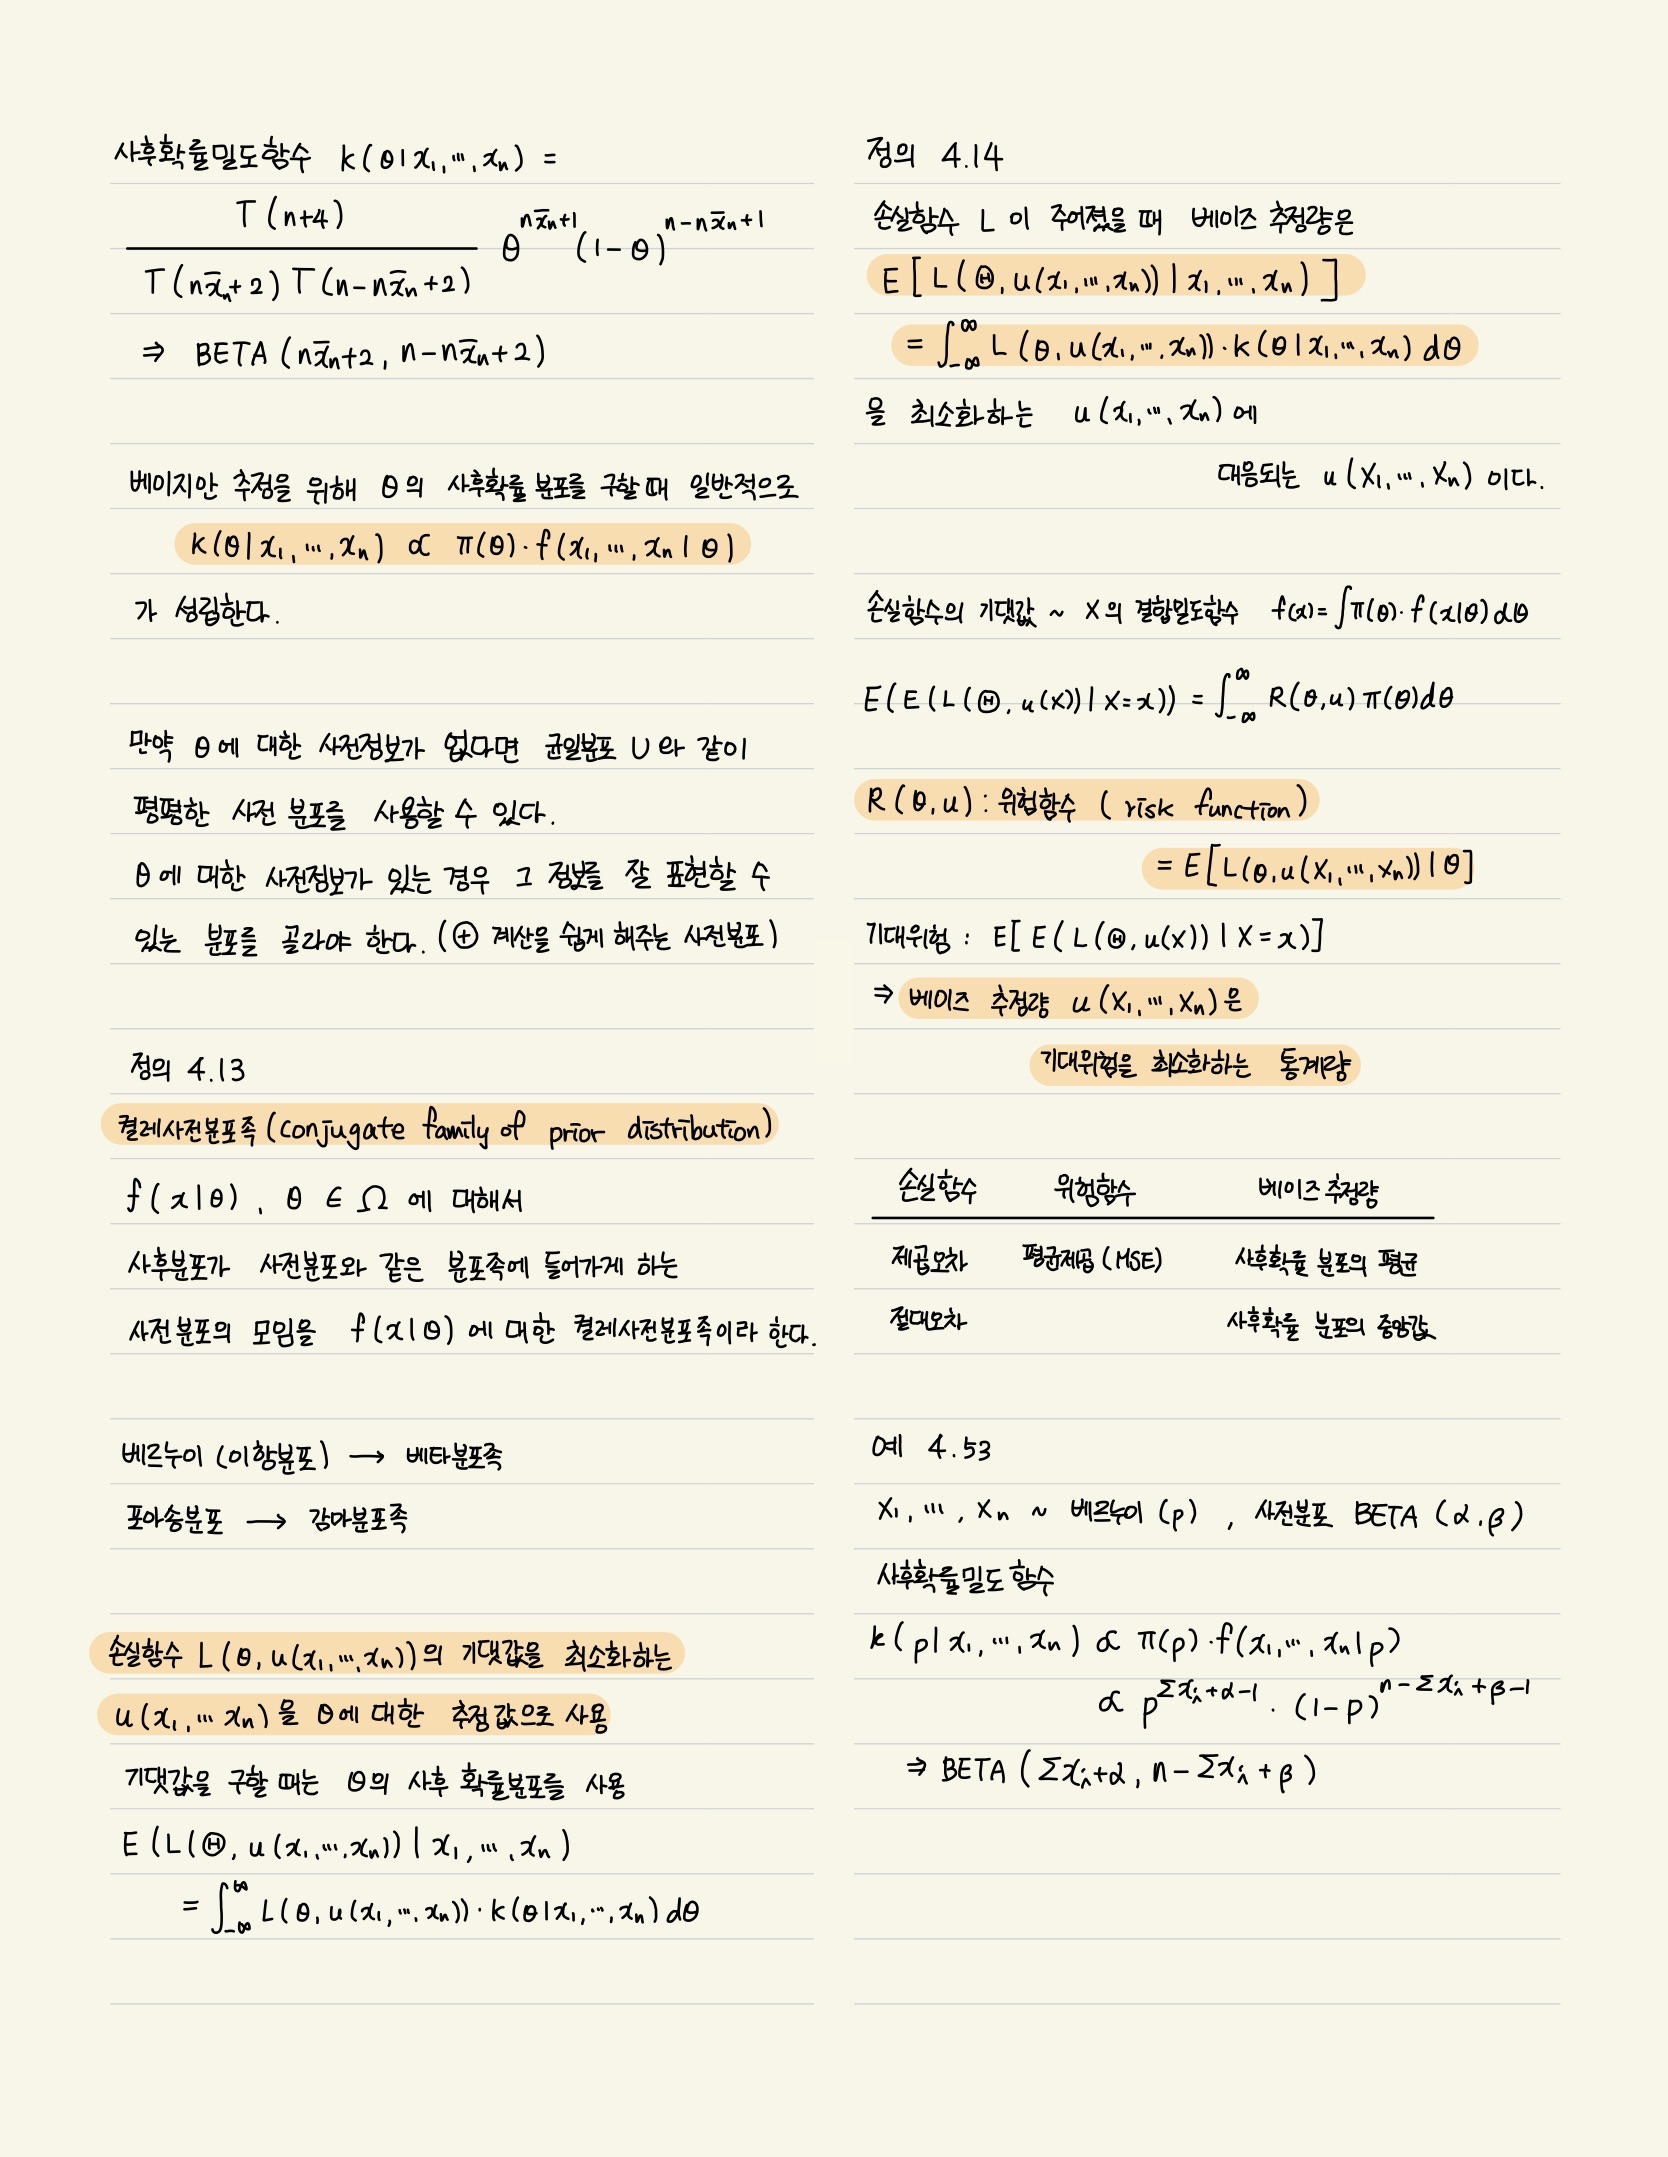 사후확률밀도함수 k(θ|x₁,…,xₙ) =
T(n+4)
T(nx̄ₙ+2) T(n-nx̄ₙ+2)
θ^(nx̄ₙ+1) (1-θ)^(n-nx̄ₙ+1)
⇒ BETA (nx̄ₙ+2, n-nx̄ₙ+2)
베이지안 추정을 위해 θ의 사후확률 분포를 구할 때 일반적으로
k(θ|x₁,…,xₙ) ∝ π(θ)·f(x₁,…,xₙ|θ)
가 성립한다.
만약 θ에 대한 사전정보가 없다면 균일분포 U와 같이
평평한 사전 분포를 사용할 수 있다.
θ에 대한 사전정보가 있는 경우 그 정보를 잘 표현할 수
있는 분포를 골라야 한다. (⊕ 계산을 쉽게 해주는 사전분포)
정의 4.13
켤레사전분포족 (conjugate family of prior distribution)
f(x|θ), θ ∈ Ω 에 대해서
사후분포가 사전분포와 같은 분포족에 들어가게 하는
사전분포의 모임을 f(x|θ)에 대한 켤레사전분포족이라 한다.
베르누이 (이항분포) → 베타분포족
포아송분포 → 감마분포족
손실함수 L(θ, u(x₁,…,xₙ))의 기댓값을 최소화하는
u(x₁,…xₙ)을 θ에 대한 추정값으로 사용
기댓값을 구할 때는 θ의 사후 확률분포를 사용
E(L(Θ, u(x₁,…,xₙ))|x₁,…,xₙ)
= ∫_{-∞}^{∞} L(θ, u(x₁,…,xₙ))·k(θ|x₁,…,xₙ)dθ
정의 4.14
손실함수 L이 주어졌을 때 베이즈 추정량은
E[L(Θ, u(x₁,…,xₙ))|x₁,…,xₙ)]
= ∫_{-∞}^{∞} L(θ, u(x₁,…,xₙ))·k(θ|x₁,…,xₙ)dθ
을 최소화하는 u(x₁,…,xₙ)에
대응되는 u(X₁,…,Xₙ)이다.
손실함수의 기댓값 ~ X의 결합밀도함수 f(x)=∫π(θ)·f(x|θ)dθ
E(E(L(Θ, u(X))|X=x)) = ∫_{-∞}^{∞} R(θ,u)π(θ)dθ
R(θ,u) : 위험함수 (risk function)
= E[L(θ,u(X₁,…,Xₙ))|θ]
기대위험 : E[E(L(Θ,u(X))|X=x)]
⇒ 베이즈 추정량 u(X₁,…,Xₙ)은
기대위험을 최소화하는 통계량
손실함수 위험함수 베이즈 추정량
제곱오차 평균제곱(MSE) 사후확률 분포의 평균
절대오차 사후확률 분포의 중앙값
예 4.53
X₁,…,Xₙ ~ 베르누이 (p), 사전분포 BETA (α,β)
사후확률밀도 함수
k(p|x₁,…,xₙ) ∝ π(p)·f(x₁,…,xₙ|p)
∝ p^(Σxᵢ+α-1) · (1-p)^(n-Σxᵢ+β-1)
⇒ BETA (Σxᵢ+α, n-Σxᵢ+β)